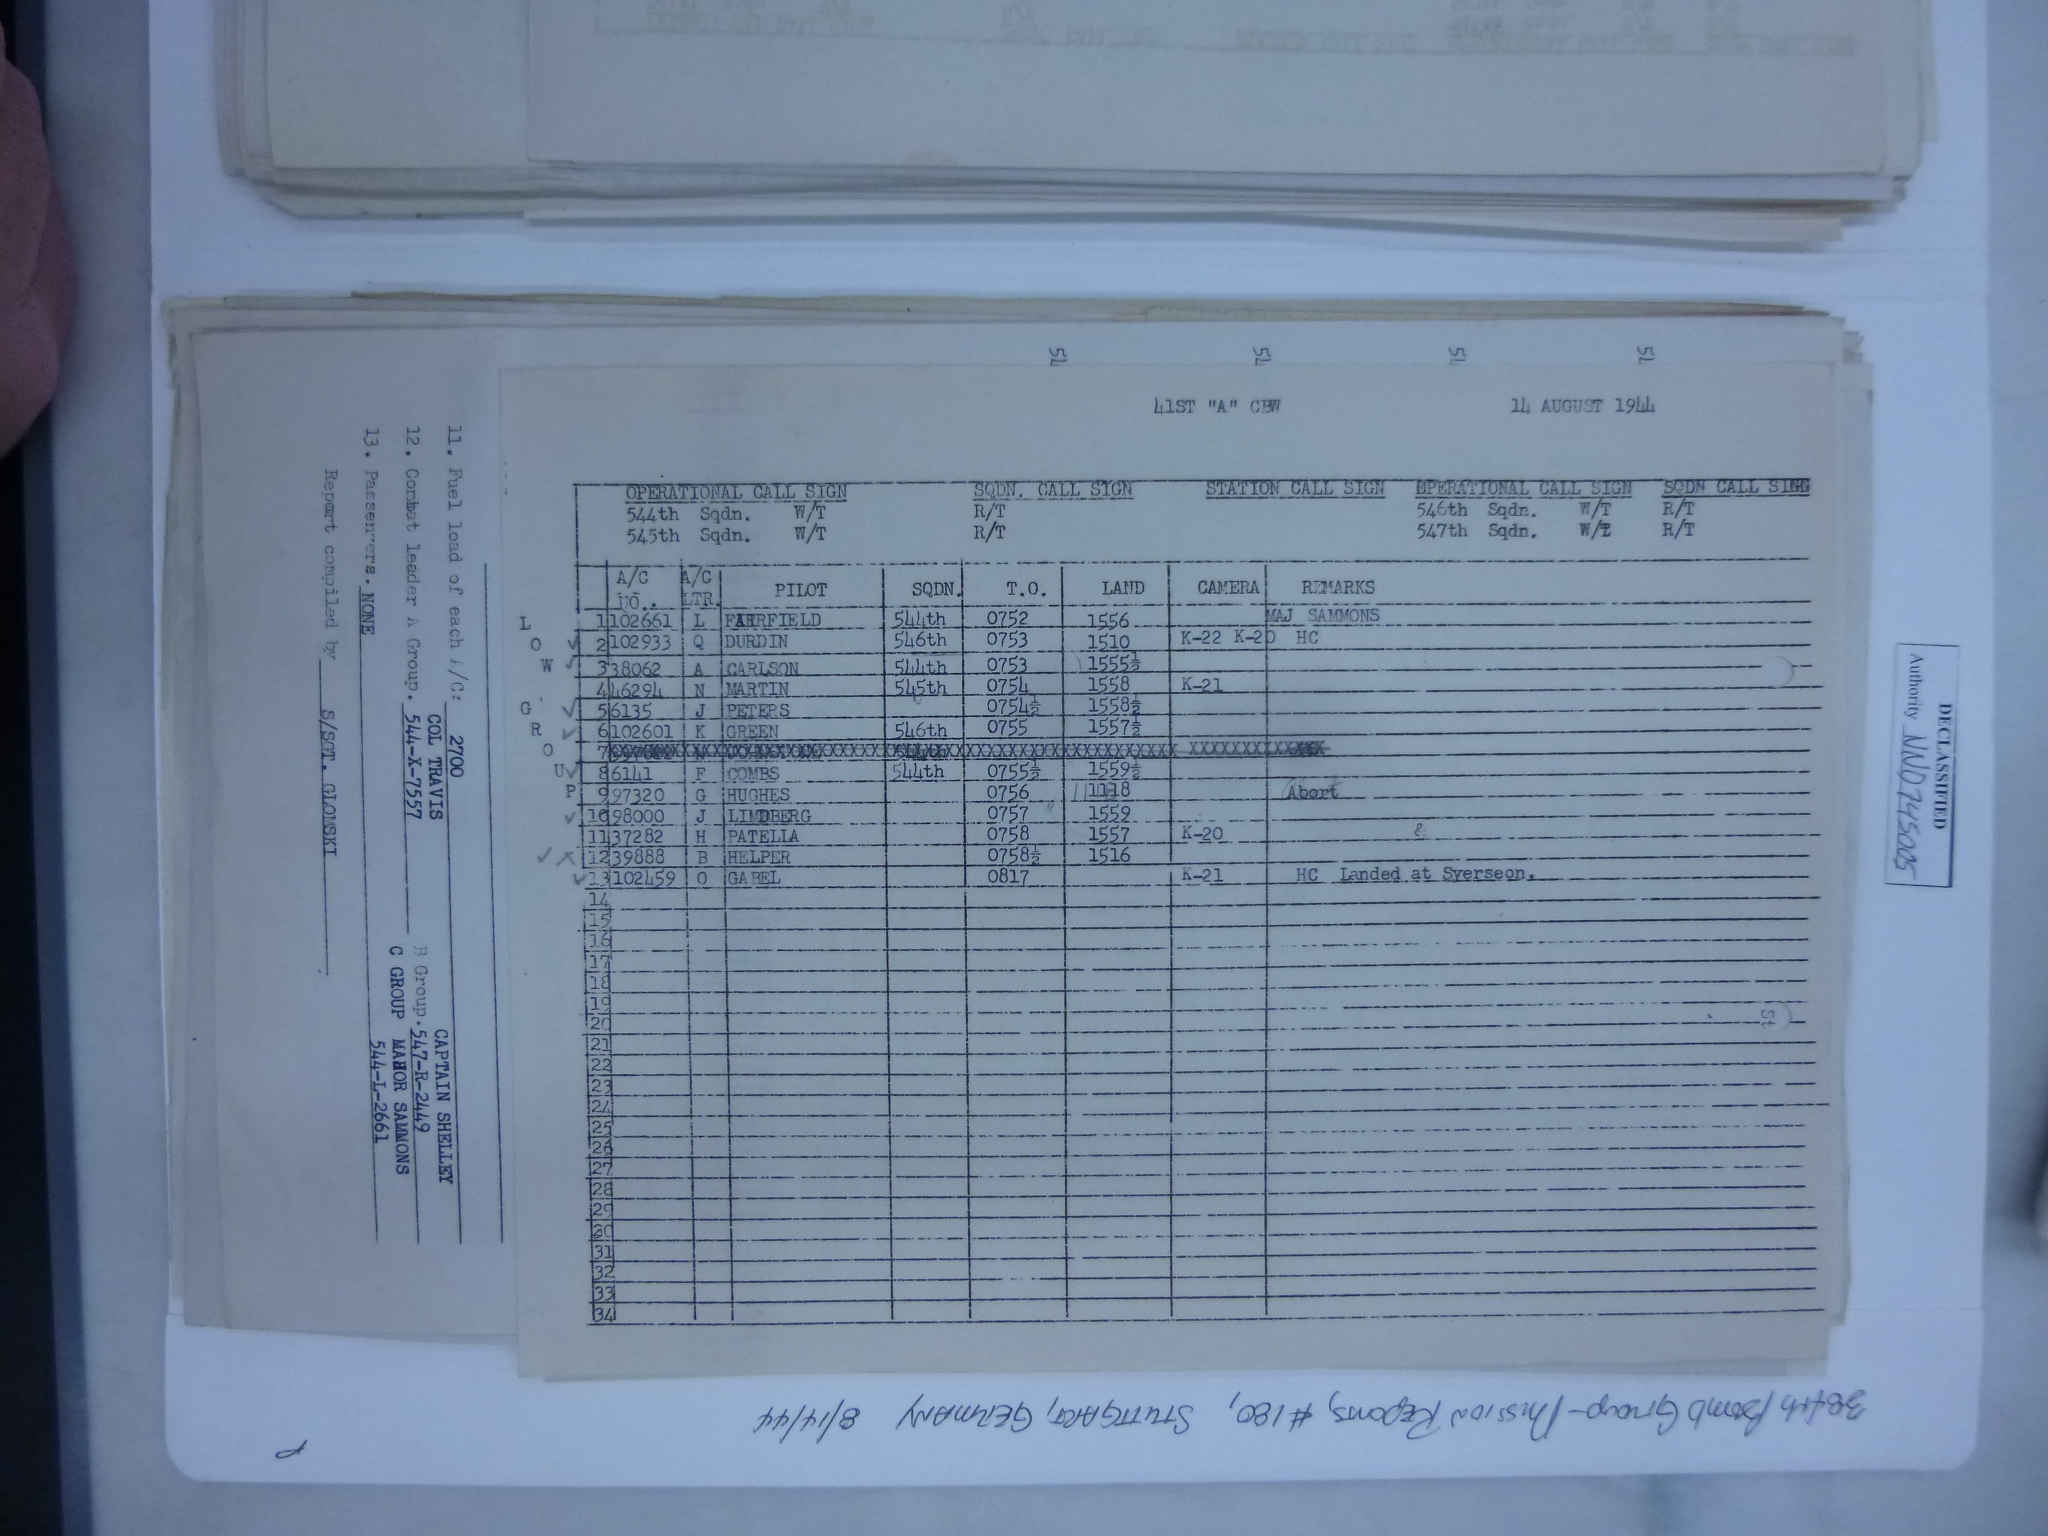 41ST "A" CBW 14 AUGUST 1944
OPERATIONAL CALL SIGN SQDN. CALL SIGN STATION CALL SIGN OPERATIONAL CALL SIGN SQDN CALL SIGN
544th Sqdn. W/T R/T 546th Sqdn. W/T R/T
545th Sqdn. W/T R/T 547th Sqdn. W/T R/T
A/C NO. A/C LTR. PILOT SQDN. T.O. LAND CAMERA REMARKS
L 1 102661 L FAIRFIELD 544th 0752 1556 MAJ SAMMONS
O ✓ 2 102933 Q DURDIN 546th 0753 1510 K-22 K-20 HC
W ✓ 3 38062 A CARLSON 544th 0753 1555½
4 46294 N MARTIN 545th 0754 1558 K-21
G ✓ 5 6135 J PETERS 0754½ 1558½
R ✓ 6 102601 K GREEN 546th 0755 1557½
O 7
U ✓ 8 6141 F COMBS 544th 0755½ 1559½
P 9 97320 G HUGHES 0756 1118 Abort
✓ 10 98000 J LINDBERG 0757 1559
11 37282 H PATELIA 0758 1557 K-20
✓ X 12 39888 B HELPER 0758½ 1516
✓ 13 102459 O GABEL 0817 K-21 HC Landed at Syerseon.
14
15
16
17
18
19
20
21
22
23
24
25
26
27
28
29
30
31
32
33
34
11. Fuel load of each A/C: 2700
COL TRAVIS CAPTAIN SHELLEY
12. Combat leader A Group. 544-X-7557 B Group. 547-R-2449
C GROUP MAHOR SAMMONS
13. Passengers. NONE 544-L-2661
Report compiled by S/SGT. GLOMSKI
54
54
54
54
DECLASSIFIED
Authority NND745005
384th Bomb Group - Mission Reports, #180, STUTTGART, GERMANY 8/14/44